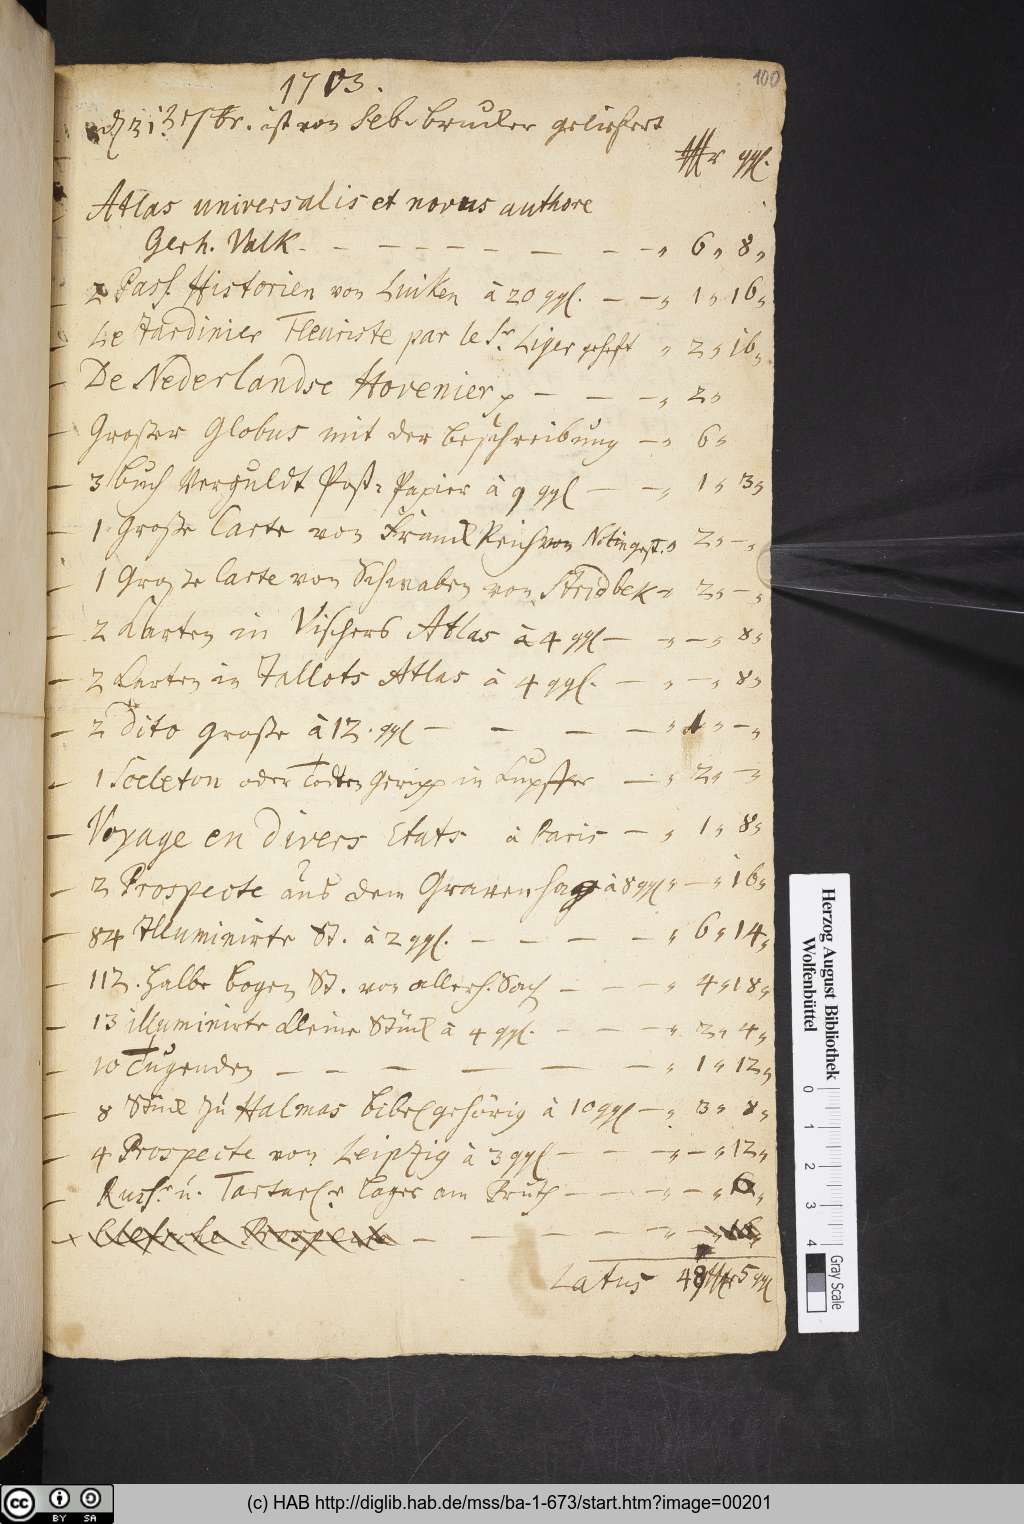 100
1703.
13 7br. ist von Seb. Bruckner geliefert
ggl.
Atlas universalis et novus authore
Gerh. Valk. - - - - - - - - „ 6 „ 8 „
2 Pass. Historien von Luiken à 20 ggl. - - „ 1 „ 16 „
Le Jardinier Fleuriste par le Sr. Liger geheft „ 2 „ 16 „
De Nederlandse Hovenier - - - „ 2 „
Großer Globus mit der beschreibung - „ 6 „
3 buch Verguldt Post-Papier à 9 ggl - - „ 1 „ 3 „
1 Große Carte von Franck Reich von Nolin „ 2 „ - „
1 Große Carte von Schwaben von Stridbek „ 2 „ - „
2 Karten in Vischers Atlas à 4 ggl - „ - „ 8 „
2 Karten in Jallots Atlas à 4 ggl. - „ - „ 8 „
2 Dito große à 12. ggl - - - - „ 1 „ - „
1 Sceleton oder Todten Geripp in Kupffer - „ 2 „ - „
Voyage en divers Etats à Paris - „ 1 „ 8 „
2 Prospecte aus dem Gravenhag à 8 ggl „ - „ 16 „
84 Illuminirte St. à 2 ggl. - - - - „ 6 „ 14 „
112. Halbe bogen St. von allerh. Sach - - - „ 4 „ 18 „
13 illuminirte kleine Stück à 4 ggl. - - - „ 2 „ 4 „
10 Tugenden - - - - - - „ 1 „ 12 „
8 Stück zu Halmas bibel gehörig à 10 ggl - „ 3 „ 8 „
4 Prospecte von Leipzig à 3 ggl - - - „ - „ 12 „
Russ. u. Tartar. Lager am Pruth - - - „ - „ 6 „
Prospecte - - - - - „ - „
Latus 48 5 ggl
Herzog August Bibliothek
Wolfenbüttel
0 1 2 3 4
Gray Scale
cc BY SA
(c) HAB http://diglib.hab.de/mss/ba-1-673/start.htm?image=00201